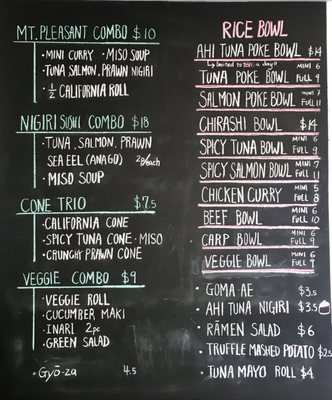 MT. PLEASANT COMBO $10
• MINI CURRY • MISO SOUP
• TUNA, SALMON, PRAWN NIGIRI
• 1/2 CALIFORNIA ROLL
NIGIRI SUSHI COMBO $18
• TUNA, SALMON, PRAWN
SEA EEL (ANAGO) 2 each
• MISO SOUP
CONE TRIO $7.5
• CALIFORNIA CONE
• SPICY TUNA CONE • MISO
• CRUNCHY PRAWN CONE
VEGGIE COMBO $9
• VEGGIE ROLL
• CUCUMBER MAKI
• INARI 2pc
• GREEN SALAD
• Gyo-za 4.5
RICE BOWL
AHI TUNA POKE BOWL $14
↳ limited to ten a day!!
TUNA POKE BOWL MINI 6 FULL 9
SALMON POKE BOWL MINI 7 FULL 11
CHIRASHI BOWL $14
SPICY TUNA BOWL MINI 6 FULL 9
SPICY SALMON BOWL MINI 7 FULL 11
CHICKEN CURRY MINI 5 FULL 8
BEEF BOWL MINI 6 FULL 10
CARP BOWL MINI 6 FULL 9
VEGGIE BOWL MINI 6 FULL 9
• GOMA AE $3.5
• AHI TUNA NIGIRI $3.5
• RAMEN SALAD $6
• TRUFFLE MASHED POTATO $2.5
• TUNA MAYO ROLL $4